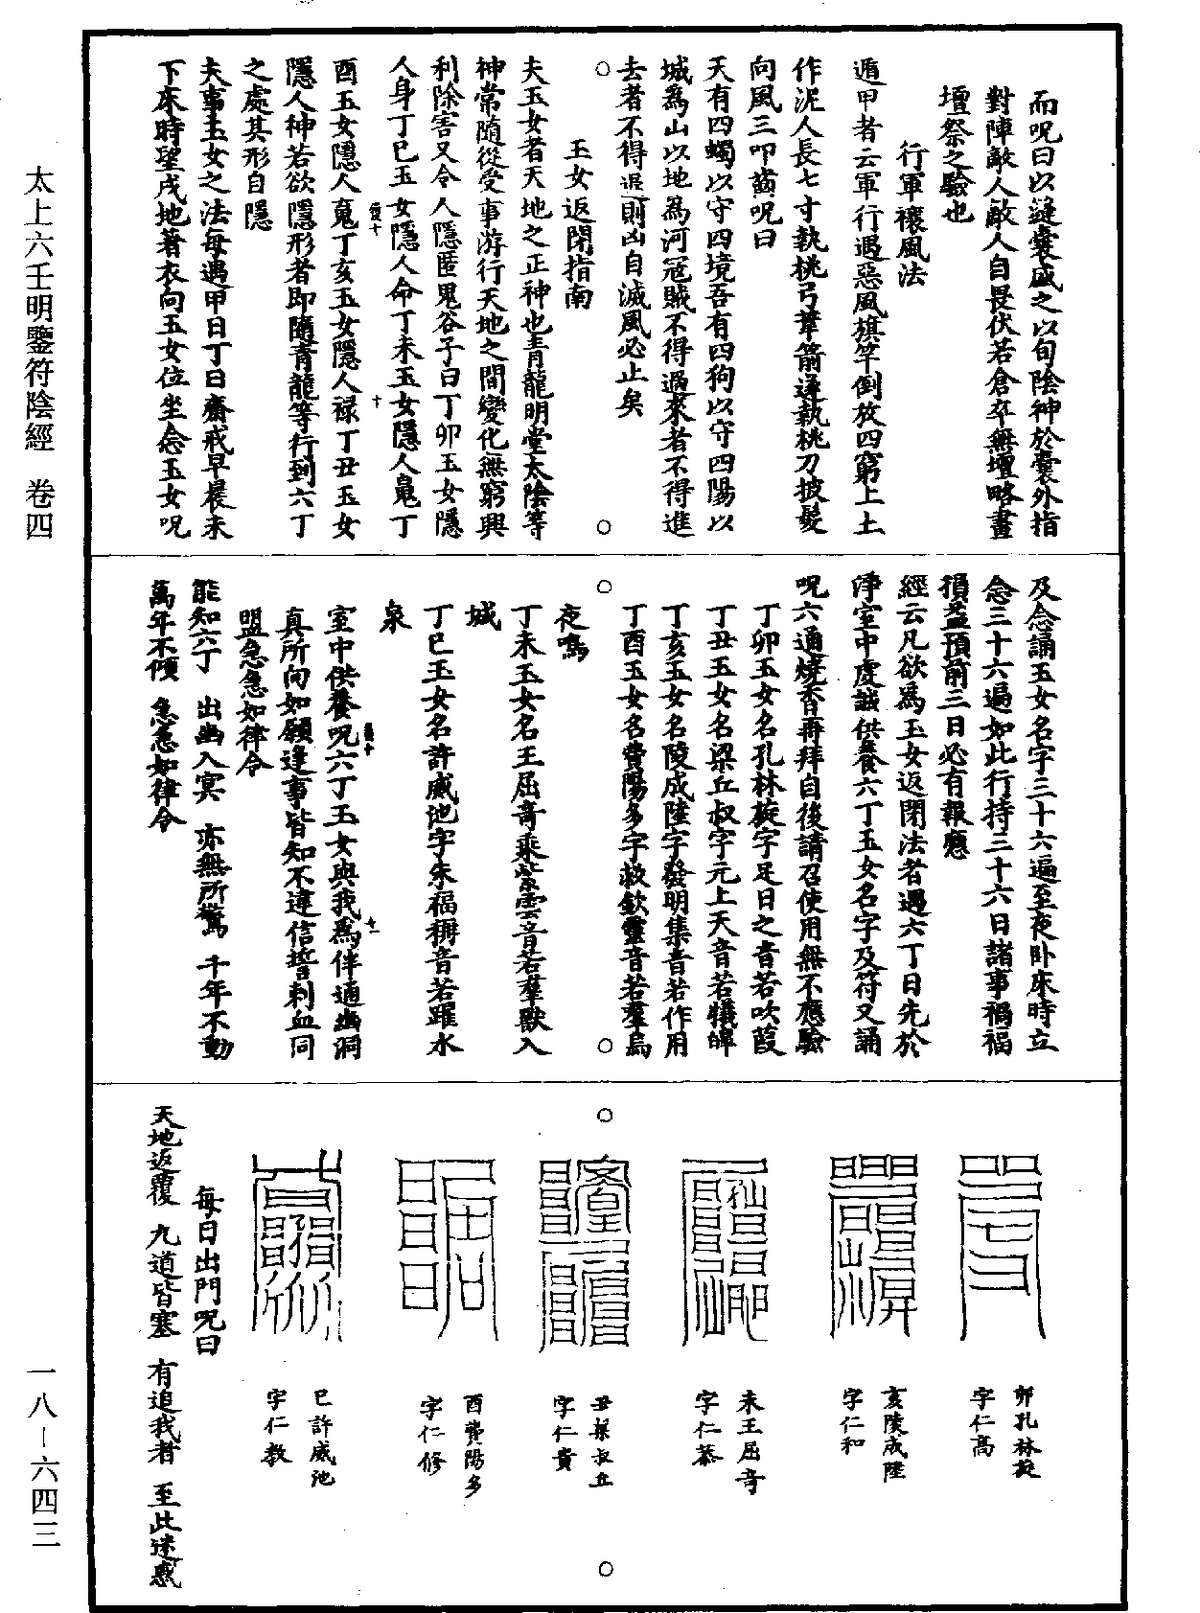 而呪曰以縫囊盛之以旬陰神於囊外指
對陣敵人敵人自畏伏若倉卒無壇略畫
壇祭之驗也
行軍禳風法
遁甲者云軍行遇惡風旗竿倒放四窮上土
作泥人長七寸執桃弓葦箭逐執桃刀披髮
向風三叩齒呪曰
天有四蠋以守四境吾有四狗以守四陽以
城為山以地為河寇賊不得過來者不得進
去者不得退則凶自滅風必止矣
玉女返閉指南
夫玉女者天地之正神也青龍明堂太陰等
神常隨從受事游行天地之間變化無窮興
利除害又令人隱匿鬼谷子曰丁卯玉女隱
人身丁巳玉女隱人命丁未玉女隱人魂丁
酉玉女隱人魄丁亥玉女隱人祿丁丑玉女
隱人神若欲隱形者即隨青龍等行到六丁
之處其形自隱
夫事玉女之法每遇甲日丁日齋戒早晨未
下床時望戌地著衣向玉女位坐念玉女呪
及念誦玉女名字三十六遍至夜卧床時立
念三十六遍如此行持三十六日諸事禍福
損益預前三日必有報應
經云凡欲為玉女返閉法者遇六丁日先於
淨室中虔誠供養六丁玉女名字及符又誦
呪六通燒香再拜自後請召使用無不應驗
丁卯玉女名孔林旋字足日之音若吹葭
丁丑玉女名梁丘叔字元上天音若犢㹃
丁亥玉女名陵成陸字發明集音若作用
丁酉玉女名費陽多字救欽靈音若羣烏
夜鳴
丁未玉女名王屈奇乘紫雲音若羣獸入
城
丁巳玉女名許威池字朱福稱音若躍水
泉
室中供養呪六丁玉女與我為伴通幽洞
真所向如願逢事皆知不違信誓刺血同
盟急急如律令
能知六丁 出幽入冥 亦無所驚 千年不動
萬年不傾 急急如律令
卯孔林旋
字仁高
亥陵成陸
字仁和
未王屈奇
字仁恭
丑梁叔丘
字仁貴
酉費陽多
字仁修
巳許威池
字仁教
每日出門呪曰
天地返覆 九道皆塞 有追我者 至此迷惑
太上六壬明鑒符陰經 卷四
一八—六四三